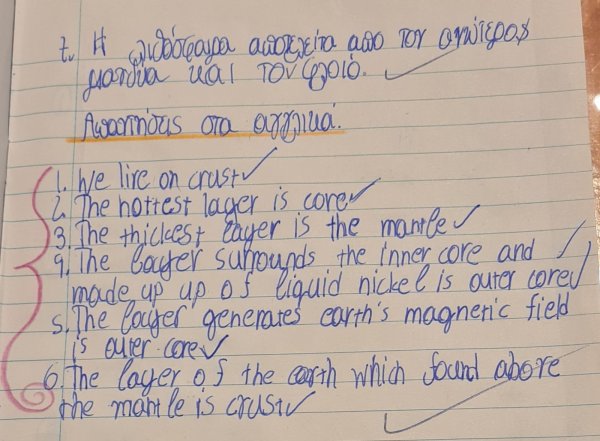 7. Η λιθόσφαιρα αποτελείται από τον ανώτερο
μανδύα και τον φλοιό.
Απαντήσεις στα αγγλικά.
1. We live on crust
2. The hottest layer is core
3. The thickest layer is the mantle
4. The layer surrounds the inner core and
made up up of liquid nickel is outer core
5. The layer generates earth's magnetic field
is outer core
6. The layer of the earth which found above
the mantle is crust